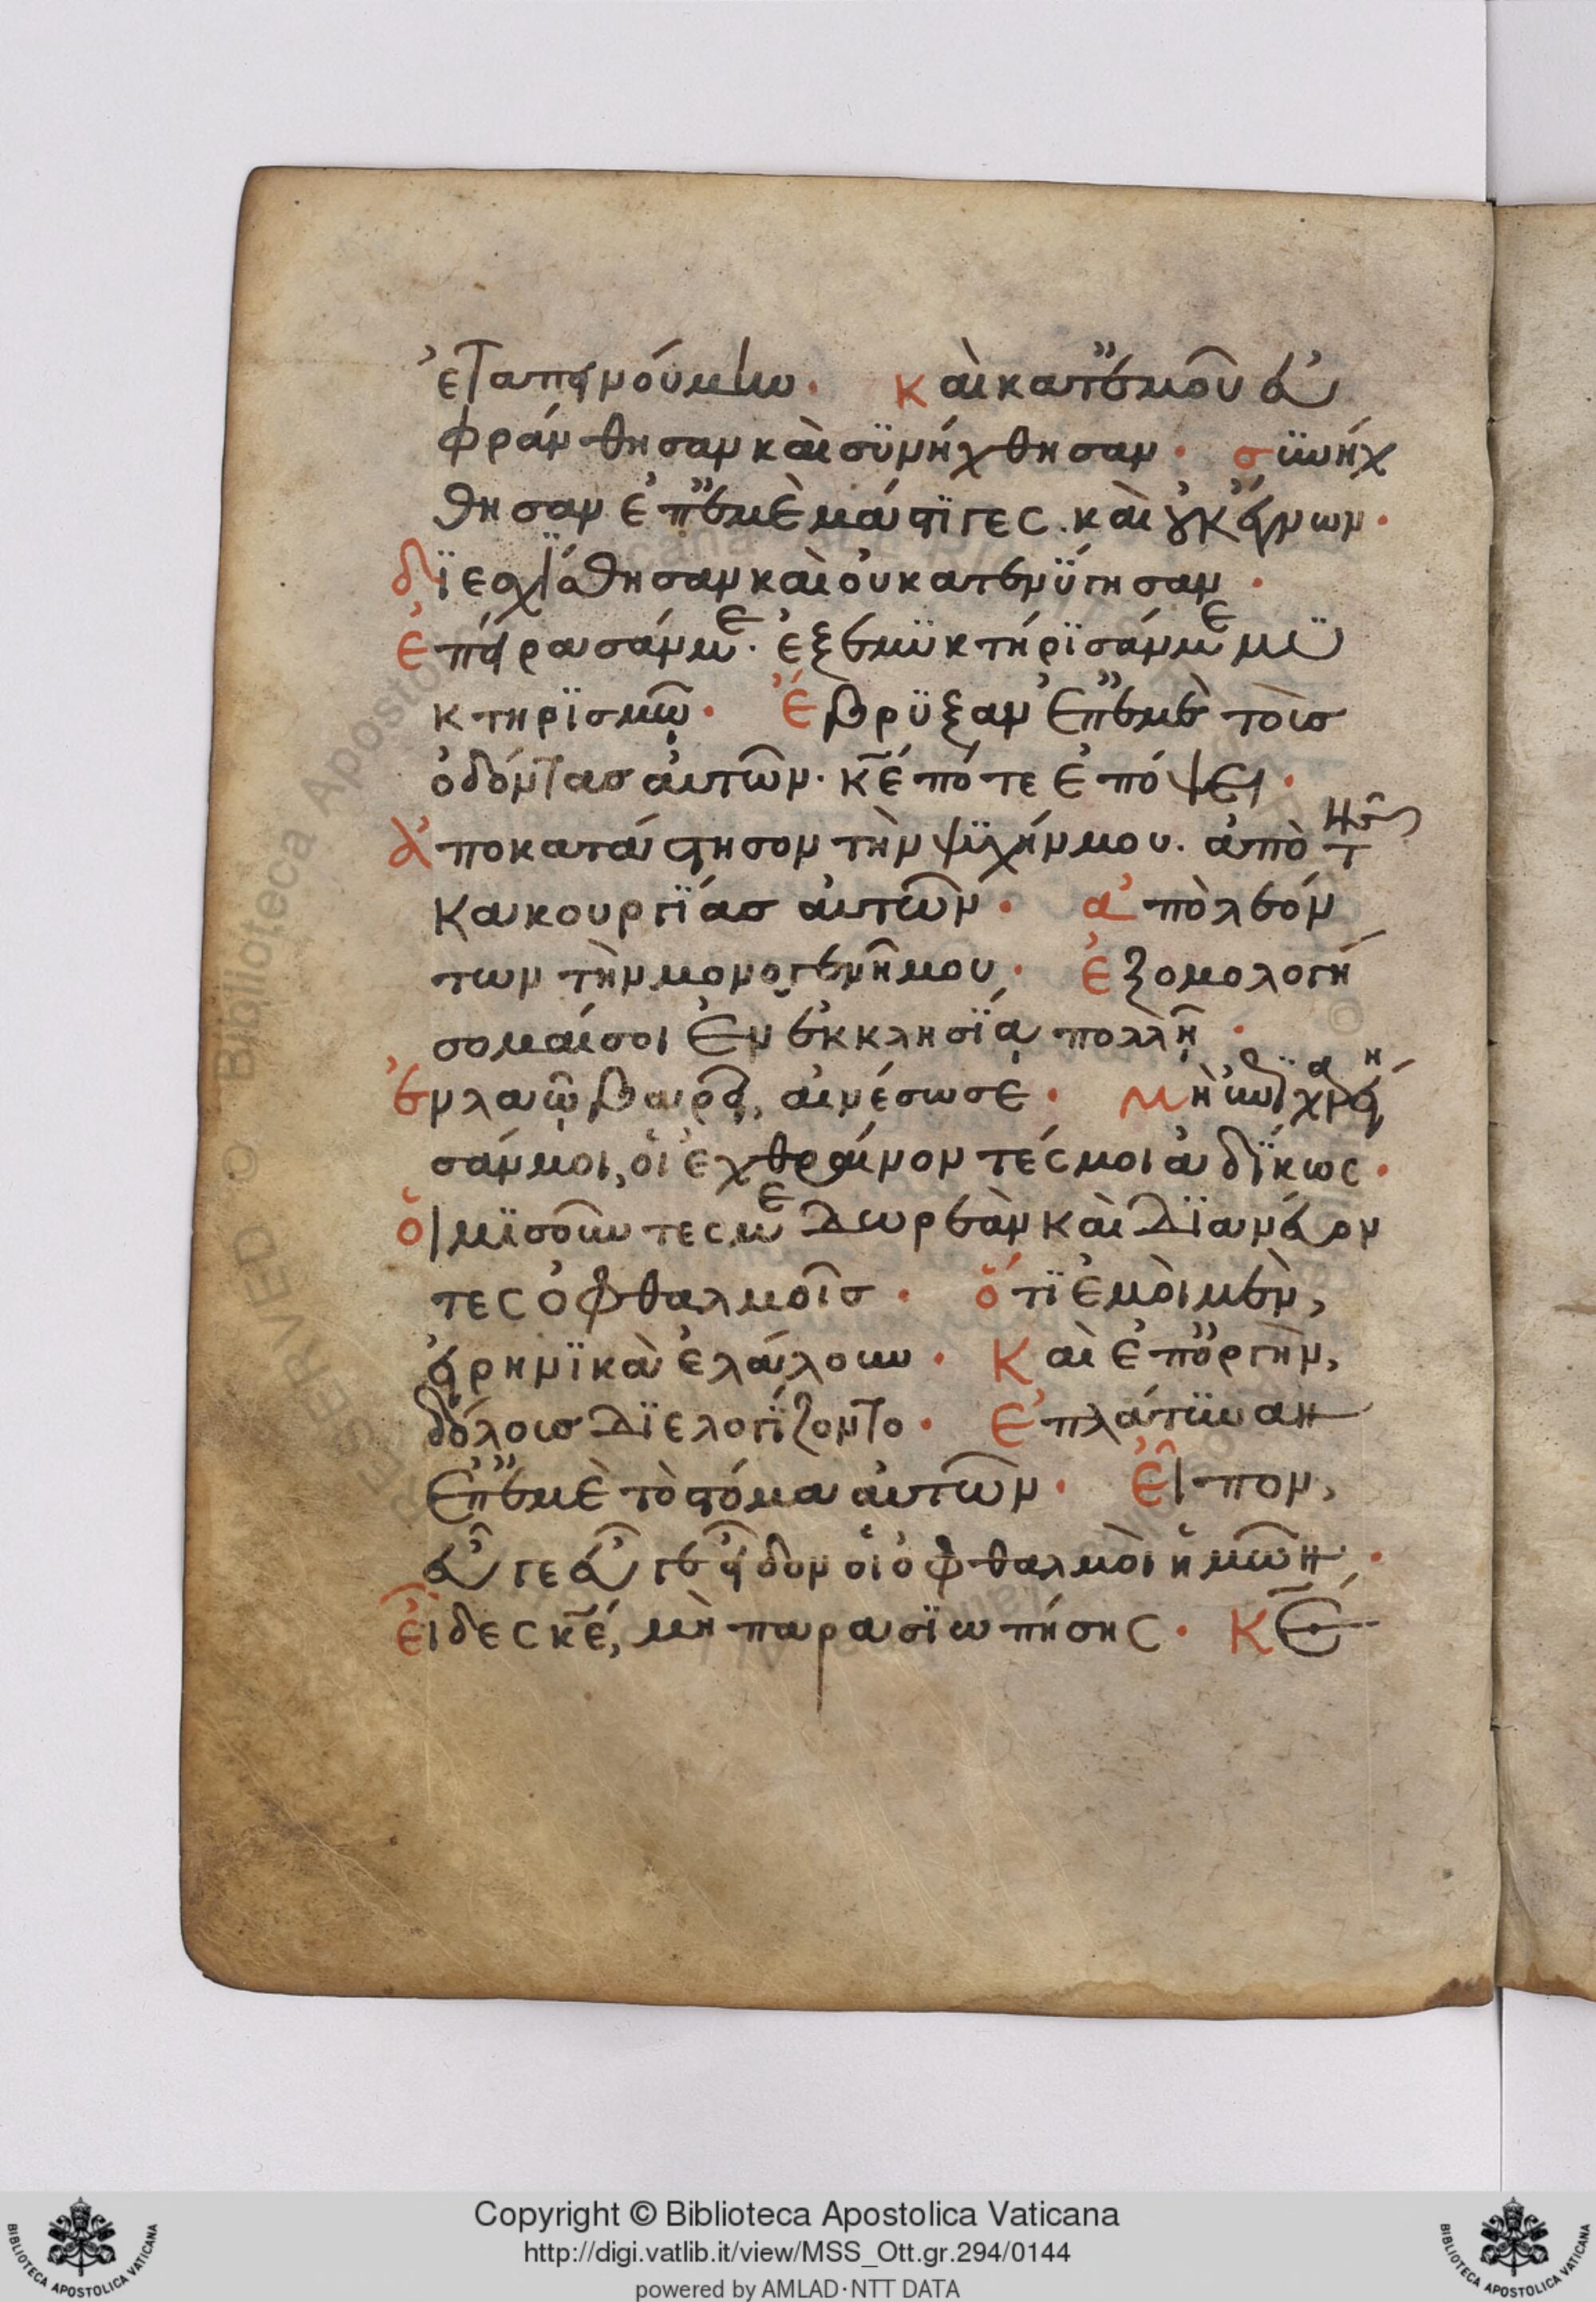 ἐταπεινούμην. Καὶ κατ' ἐμοῦ εὐ
φράνθησαν καὶ συνήχθησαν. συνήχ
θησαν ἐπ' ἐμὲ μάστιγες. καὶ οὐκ ἔγνων.
διεσχίσθησαν καὶ οὐ κατενύγησαν.
ἐπείρασάν με. ἐξεμυκτήρισάν με μυ
κτηρισμῷ. ἔβρυξαν ἐπ' ἐμὲ τοὺσ
ὀδόντασ αὐτῶν. κε πότε ἐπόψει.
ἀποκατάστησον τὴν ψυχήν μου. ἀπὸ τῆς
κακουργίασ αὐτῶν. ἀπὸ λεόν
των τὴν μονογενῆ μου. ἐξομολογή
σομαί σοι ἐν ἐκκλησίᾳ πολλῇ.
ἐν λαῷ βαρεῖ, αἰνέσω σε. Μὴ ἐπιχαρείη
σάν μοι, οἱ ἐχθραίνοντές μοι ἀδίκως.
οἱ μισοῦντες με δωρεὰν καὶ διανεύον
τες ὀφθαλμοῖσ. ὅτι ἐμοὶ μὲν,
εἰρηνικὰ ἐλάλουν. Καὶ ἐπ' ὀργὴν,
δόλουσ διελογίζοντο. Ἐπλάτυναν
ἐπ' ἐμὲ τὸ στόμα αὐτῶν. εἶπον,
εὖγε εὖγε εἶδον οἱ ὀφθαλμοὶ ἡμῶν.
εἶδες κε, μὴ παρασιωπήσης. Κε
Copyright © Biblioteca Apostolica Vaticana
http://digi.vatlib.it/view/MSS_Ott.gr.294/0144
powered by AMLAD·NTT DATA
BIBLIOTECA APOSTOLICA VATICANA
BIBLIOTECA APOSTOLICA VATICANA